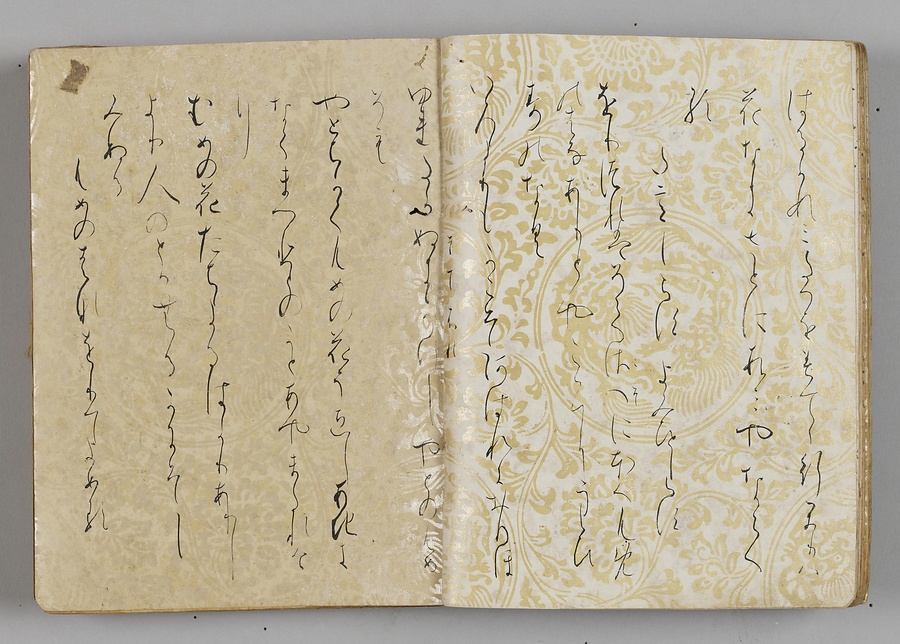 はるかすみたつを見すてゝ行かりは
花なきさとにすみやならへ
る
たいしらす よみひとしらす
をりつれはそてこそにほへむめ
のはなありとやこゝにうくひ
すのなく
いろよりもかこそあはれとおもほ
ゆれたか
やとの
そも
やとちかくむめの花うゑしあちき
なくまつ人のかとあやまたれけ
り
むめの花たちよるはかりありし
より人のとかむるかにそし
みぬる
むめのはなををりてよめる